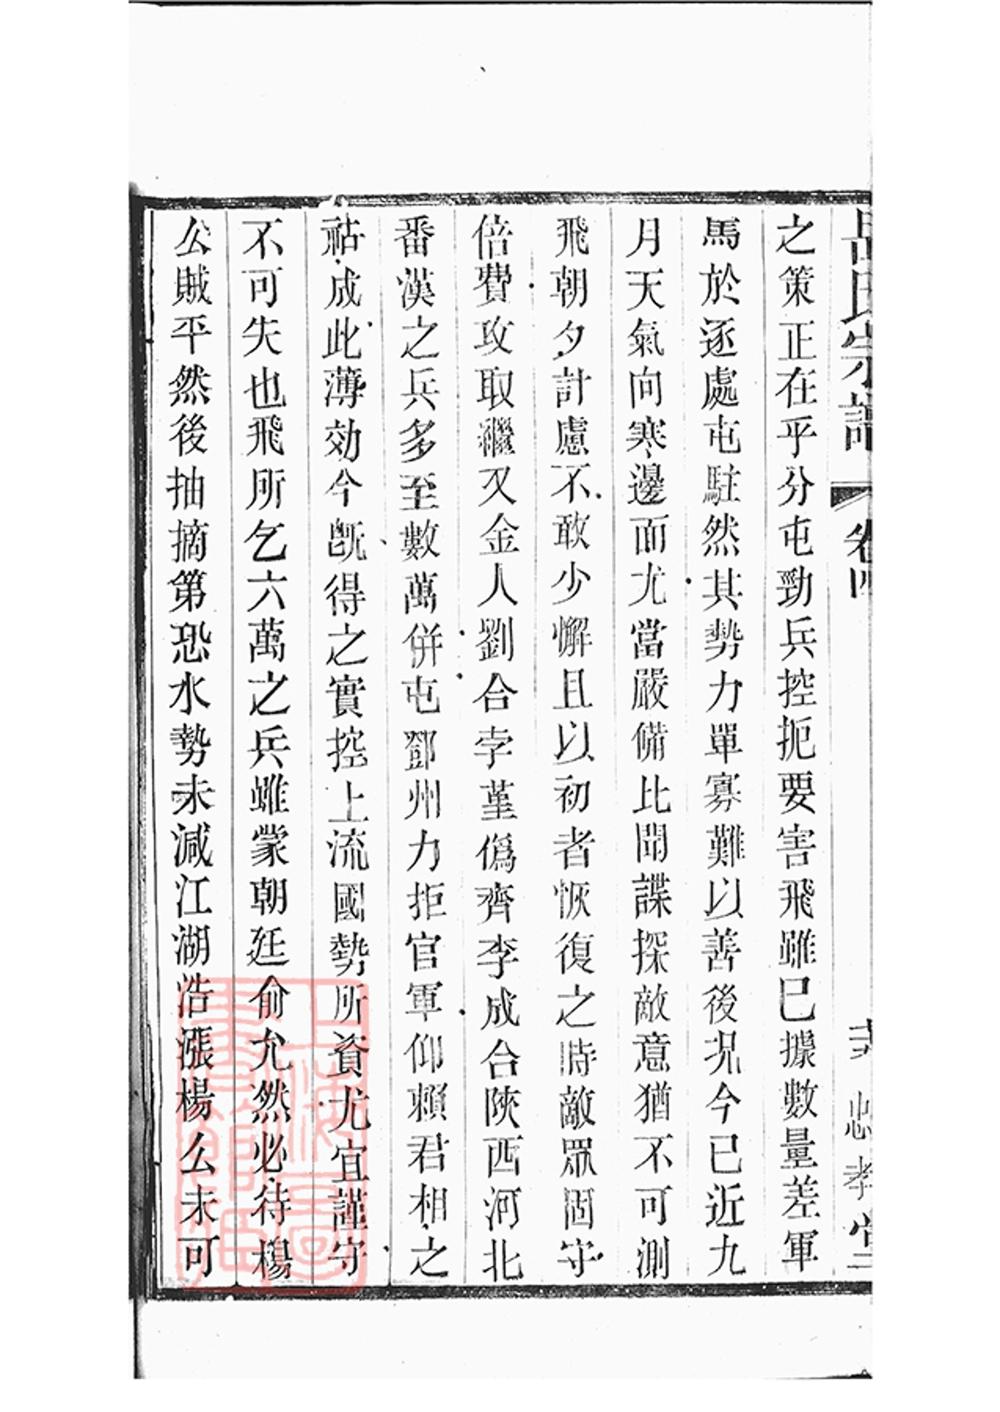 岳氏宗譜 卷四 忠孝堂
之策正在乎分屯勁兵控扼要害飛雖已據數量差軍
馬於逐處屯駐然其勢力單寡難以善後況今已近九
月天氣向寒邊面尤當嚴備比聞諜探敵意猶不可測
飛朝夕計慮不敢少懈且以初者恢復之時敵眾固守
倍費攻取繼又金人劉合孛堇僞齊李成合陜西河北
番漢之兵多至數萬併屯鄧州力拒官軍仰賴君相之
祜成此薄効今旣得之實控上流國勢所資尤宜謹守
不可失也飛所乞六萬之兵雖蒙朝廷俞允然必待楊
公賊平然後抽摘第恐水勢未減江湖浩漲楊么未可
上海圖書館藏